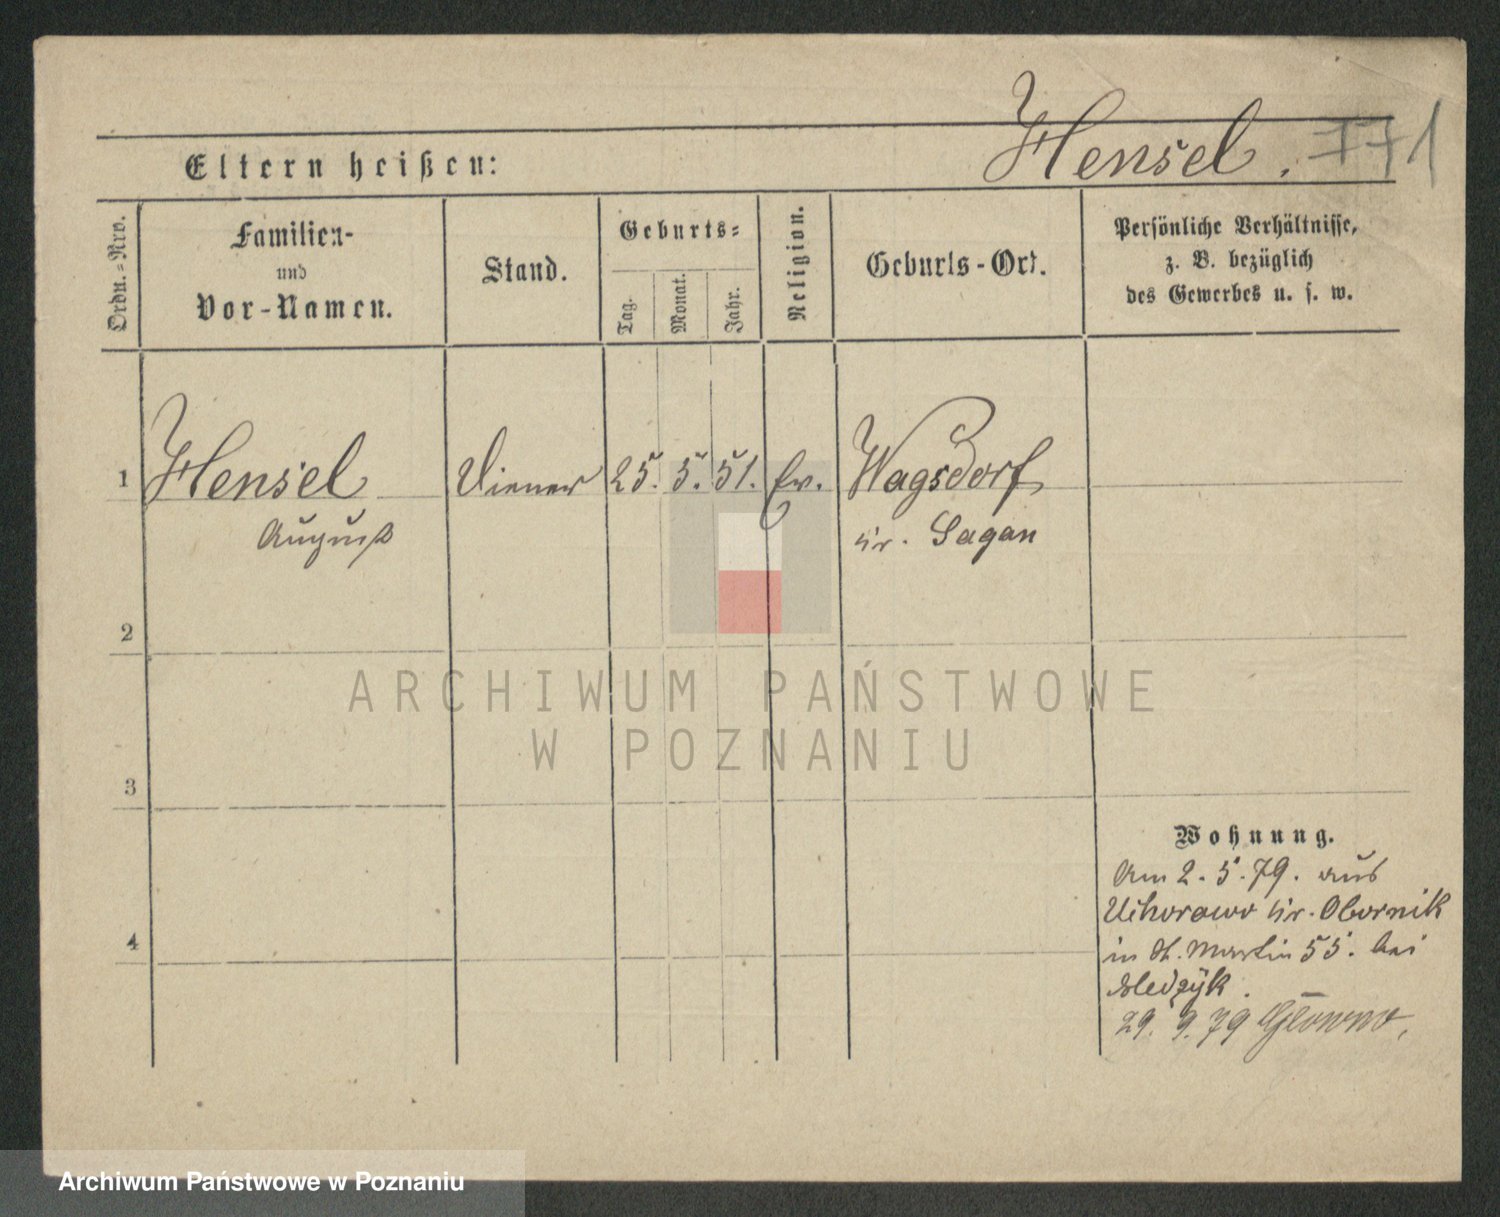 Hensel. 771
Eltern heißen:
Ordn.-Nro.
Familien-
und
Vor-Namen.
Stand.
Geburts-
Tag.
Monat.
Jahr.
Religion.
Geburts-Ort.
Persönliche Verhältnisse,
z. B. bezüglich
des Gewerbes u. s. w.
1 Hensel Diener 25. 5. 51. Ev. Wagsdorf
August Kr. Sagan
2
ARCHIWUM PAŃSTWOWE
W POZNANIU
3
Wohnung.
Am 2. 5. 79. aus
Uchorowo Kr. Obornik
4
in St. Martin 55. bei
29. 9. 79 Głowno,
Archiwum Państwowe w Poznaniu